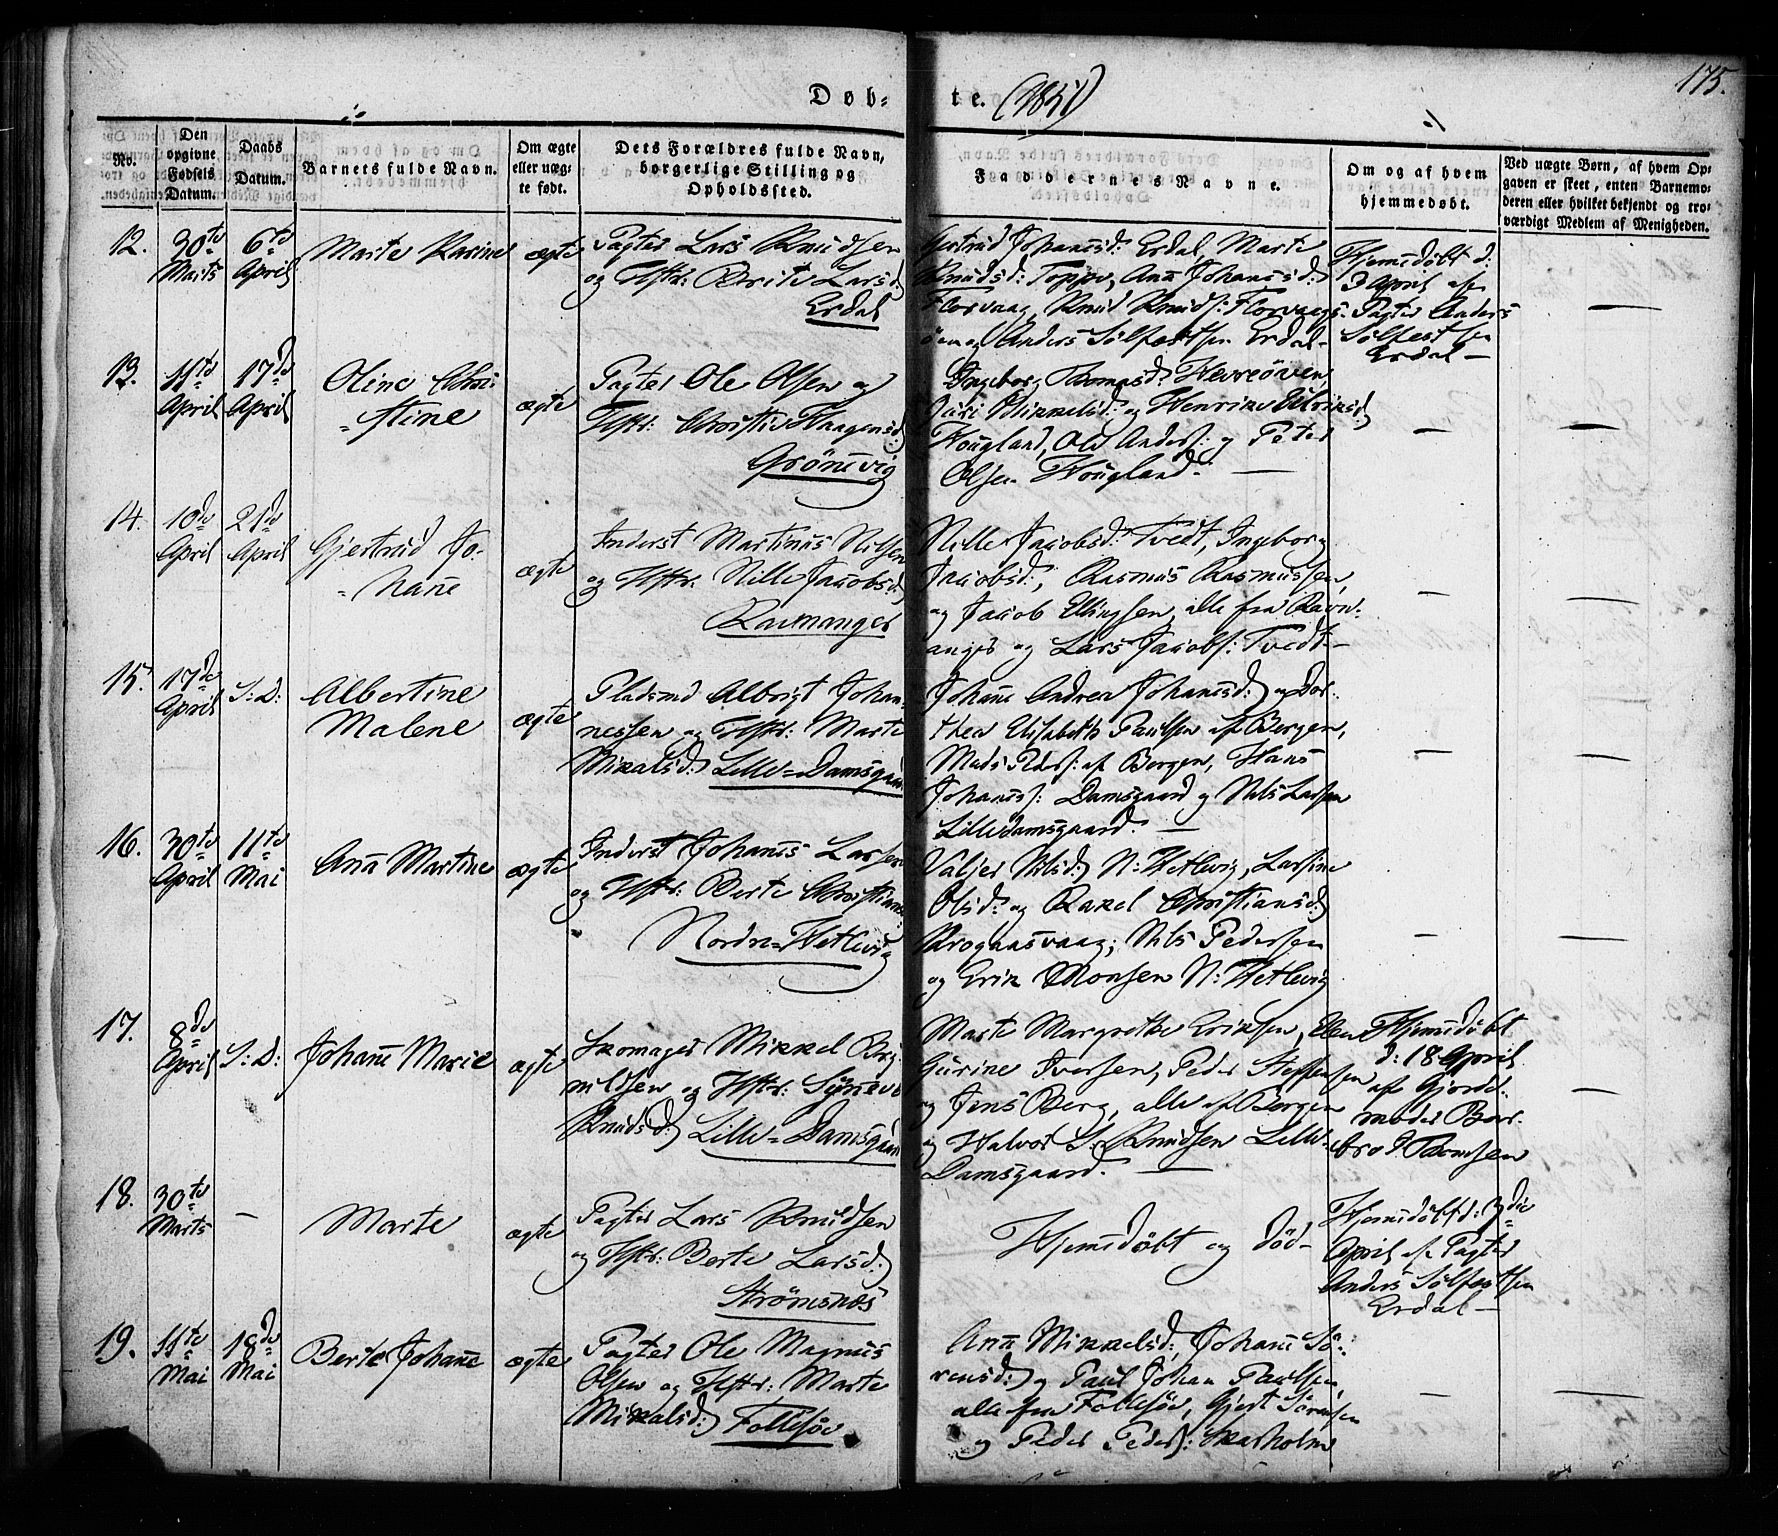 175.
Døb-
te. (1851)
No.
Den
opgivne
Fødsels
Datum.
Daabs
Datum.
Barnets fulde Navn.
Om ægte
eller uæg-
te født.
Dets Forældres fulde Navn,
borgerlige Stilling og
Opholdssted.
Faddernes Navne.
Om og af hvem
hjemmedøbt.
Ved uægte Børn, af hvem Op-
gaven er skeet, enten Barnemo-
deren eller hvilket bekjendt og tro-
værdigt Medlem af Menigheden.
12.
30te
Marts
6te
April
Marte Karine
ægte
Pagter Lars Knudsen
og Hstr: Brite Larsd:
Erdal
Gjertrud Johannsd: Erdal, Marte
Knudsd: Toppe, Anna Johannsd:
Florvaag, Knud Knuds: Florvaags-
öen og Anders Sölfestsen Erdal—
Hjemdöbt d:
3 April af
Pagter Anders
Sölfestsen
Erdal—
—
13.
11te
April
17de
April
Oline Chri-
-stine
ægte
Pagter Ole Olsen og
Hstr: Christi Haagensd:
Grönnevig
Ingeborg Thomasd: Herreöven,
Guri Mikkelsd: og Henrike Ulriksd:
Hougland, Ole Anders: og Peter
Olsen Hougland.—
—
—
14.
10de
April
21de
April
Gjertrud Jo-
-hanne
ægte
Inderst Martinus Nilsen
og Hstr. Nille Jacobsd:
Ravnanger
Nille Jacobsd: Tvedt, Ingeborg
Jacobsd:, Rasmus Rasmussen,
og Jacob Ellingsen, alle fra Ravn-
anger og Lars Jacobs: Tvedt—
—
—
15.
17de
April
S: D:
Albertine
Malene
ægte
Pladsmd Albrigt Johan-
nessen og Hstr: Marte
Mikalsd: Lille-Damsgaard
Johanne Andrea Johannsd: og Dor-
thea Elisabeth Paulsen af Bergen,
Mads Peders: af Bergen, Hans
Johannss: Damsgaard og Nils Larsen
Lilledamsgaard.—
—
—
16.
30te
April
11te
Mai
Anna Martine
ægte
Inderst Johannes Larsen
og Hstr: Berte Christiansd:
Nordre-Hetlevig
Valjer Nilsd: N: Hetlevig, Larsine
Olsd: og Rakel Christiansd:
Krogaasvaag; Nils Pedersen
og Erik Monsen N: Hetlevig
—
—
17.
8de
April
S: D:
Johanne Marie
ægte
Skomager Mikkel Bry-
nildsen og Hstr: Synneve
Knudsd: Lille-Damsgaard
Marte Margrethe Eriksen, Ellen
Gurine Iversen, Peder Steffensen
og Jens Berg, alle af Bergen
og Halvor S: Knudsen Lille-
Damsgaard.—
Hjemdöbt
d: 18 April
af Gjorde-
moder Bar-
bro Thomsen
—
18.
30te
Marts
—
Marte
ægte
Pagter Lars Knudsen
og Hstr: Berte Larsd:
Strömsnes
Hjemdöbt og död—
Hjemdöbt d: 3die
April af Pagter
Anders Sölfestsen
Erdal—
19.
11te
Mai
18de
Mai
Berte Johanne
ægte
Pagter Ole Magnus
Olsen og Hstr: Marte
Mikalsd: Follesöe
Anna Mikkelsd:, Johanne Sö-
rensd: og Paul Johan Paulsen,
alle fra Follesöe, Gjert Sörensen
og Peder Peders: Skarholm
—
—